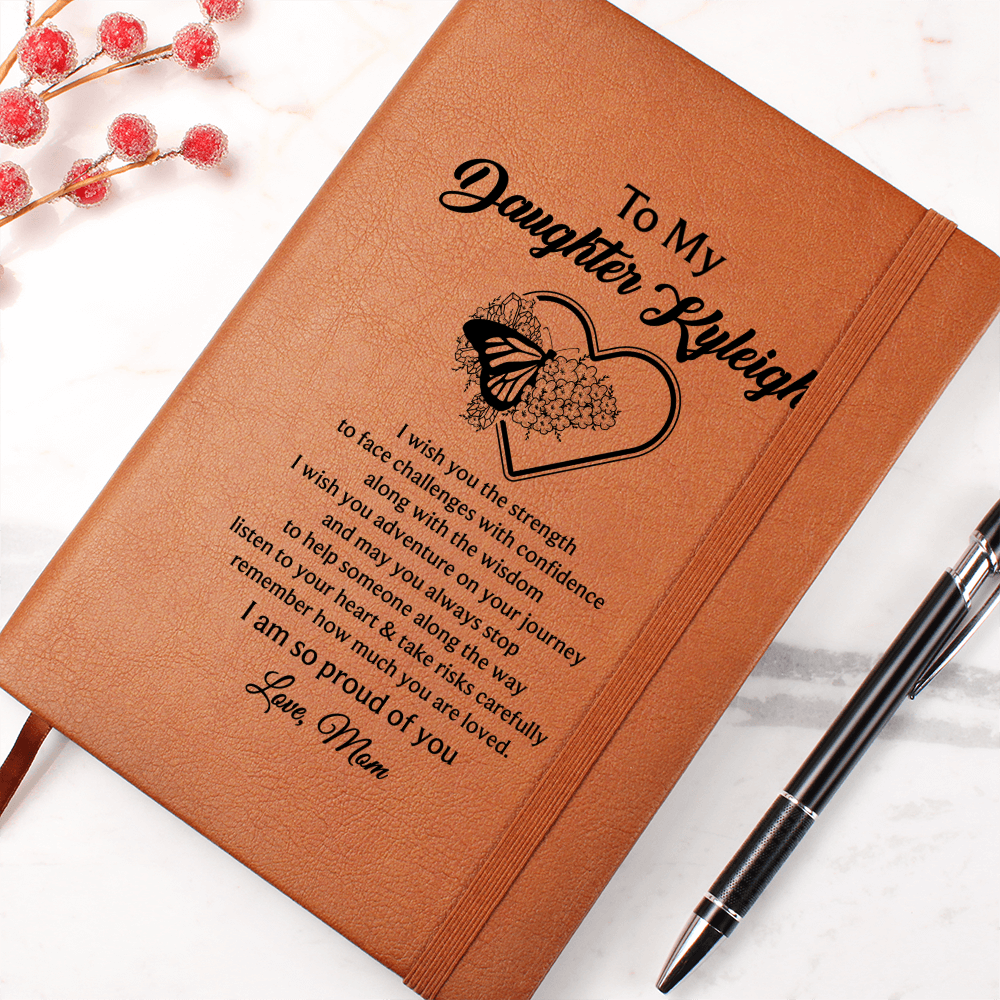 To My
Daughter Kyleigh
I wish you the strength
to face challenges with confidence
along with the wisdom
I wish you adventure on your journey
and may you always stop
to help someone along the way
listen to your heart & take risks carefully
remember how much you are loved.
I am so proud of you
Love, Mom